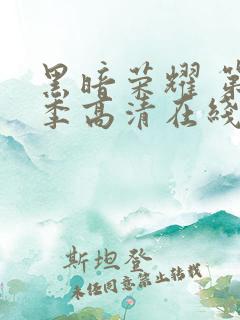 黑暗荣耀 第
季高清在线
斯坦登
未经同意禁止转载